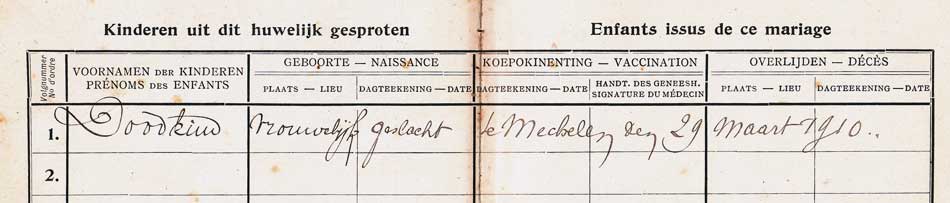 Kinderen uit dit huwelijk gesproten - Enfants issus de ce mariage
Volgnummer
No d'ordre
VOORNAMEN DER KINDEREN
PRÉNOMS DES ENFANTS
GEBOORTE — NAISSANCE
PLAATS — LIEU
DAGTEEKENING — DATE
KOEPOKINENTING — VACCINATION
DAGTEEKENING — DATE
HANDT. DES GENEESH.
SIGNATURE DU MÉDECIN
OVERLIJDEN — DÉCÈS
PLAATS — LIEU
DAGTEEKENING — DATE
1. Doodkind vrouwelijk geslacht te Mechelen den 29 Maart 1910..
2.